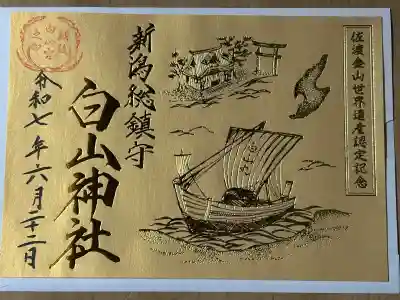 佐渡金山世界遺産認定記念
新潟総鎮守
白山神社
令和七年六月二十二日
白山丸